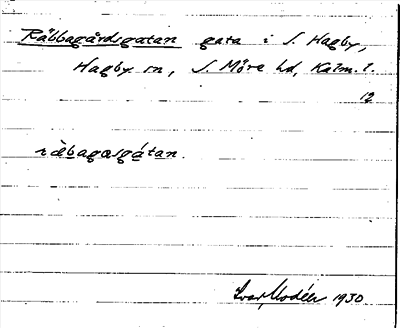 Räbbagårdsgatan gata i S. Hagby,
Hagby sn, S. Möre hd, Kalm. l.
rä̀bagasgátan.
Ivar Modéer 1930